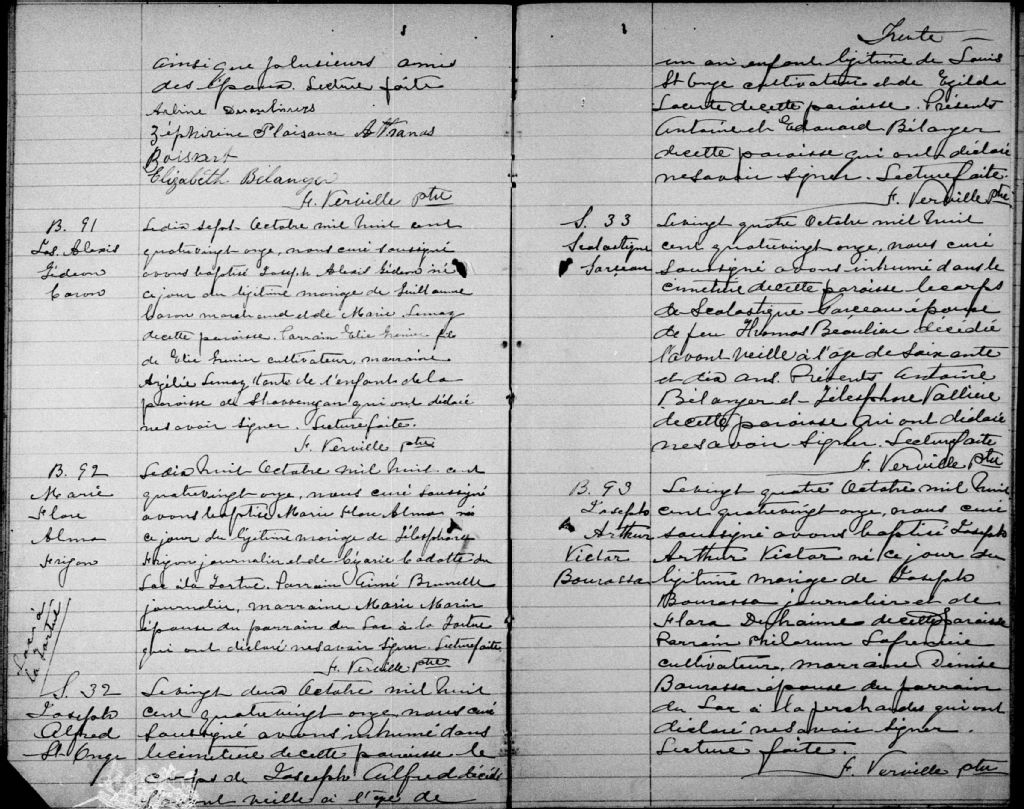 ainsi que plusieurs amis
des époux. Lecture faite
Arline
Zéphirine Plaisance A Thanas
Boisvert
Elizabeth Bélanger
F. Verville ptre
B. 91
Jos. Alexis
Gédéon
Caron
Ledix sept Octobre mil huit cent
quatrevingt onze, nous curé soussigné
avons baptisé Joseph Alexis Gédéon né
ce jour du légitime mariage de Guillaume
Caron marchand et de Marie Lemay
decette paroisse. Parrain Elie Grenier fils
de Elie Grenier cultivateur, marraine
Azélie Lemay tante de l'enfant de la
paroisse de Shawenegan qui ont déclaré
nesavoir signer. Lecture faite.
F. Verville ptre
B. 92
Marie
Flore
Alma
Frigon
Ledix huit Octobre mil huit cent
quatrevingt onze, nous curé soussigné
avons baptisé Marie Flore Alma née
ce jour du légitime mariage de Télesphore
Frigon journalier et de Cadotte du
Lac à la Tortue. Parrain Aimé Brunelle
journalier, marraine Marie Marin
épouse du parrain du Lac à la Tortue
qui ont déclaré nesavoir signer. Lecture faite.
F. Verville ptre
Lac à
la Tortue
S. 32
Joseph
Alfred
St. Onge
Levingt deux Octobre mil huit
cent quatrevingt onze, nous curé
soussigné avons inhumé dans
lecimetière decette paroisse le
corps de Joseph Alfred décédé
l'avant veille à l'âge de
Trente
un an enfant légitime de Louis
St Onge cultivateur et de Exilda
Lacerte decette paroisse. Présents
Antoine et Edouard Bélanger
decette paroisse qui ont déclaré
nesavoir signer. Lecture faite.
F. Verville ptre
S. 33
Scolastique
Garceau
Levingt quatre Octobre mil huit
cent quatrevingt onze, nous curé
soussigné avons inhumé dans le
cimetière decette paroisse le corps
de Scolastique Garceau épouse
de feu Thomas Beaulieu décédée
l'avant veille à l'âge de soixante
et dix ans. Présents Antoine
Bélanger et Télesphore Vallière
decette paroisse qui ont déclaré
nesavoir signer. Lecture faite
F. Verville ptre
B. 93
Joseph
Arthur
Victor
Bourassa
Levingt quatre Octobre mil huit
cent quatrevingt onze, nous curé
soussigné avons baptisé Joseph
Arthur Victor né ce jour du
légitime mariage de Joseph
Bourassa journalier et de
Flora Duhaime decette paroisse
Parrain Philorum Lafrenière
cultivateur, marraine Dénise
Bourassa épouse du parrain
du Lac à la perchaude qui ont
déclaré nesavoir signer.
Lecture faite.
F. Verville ptre